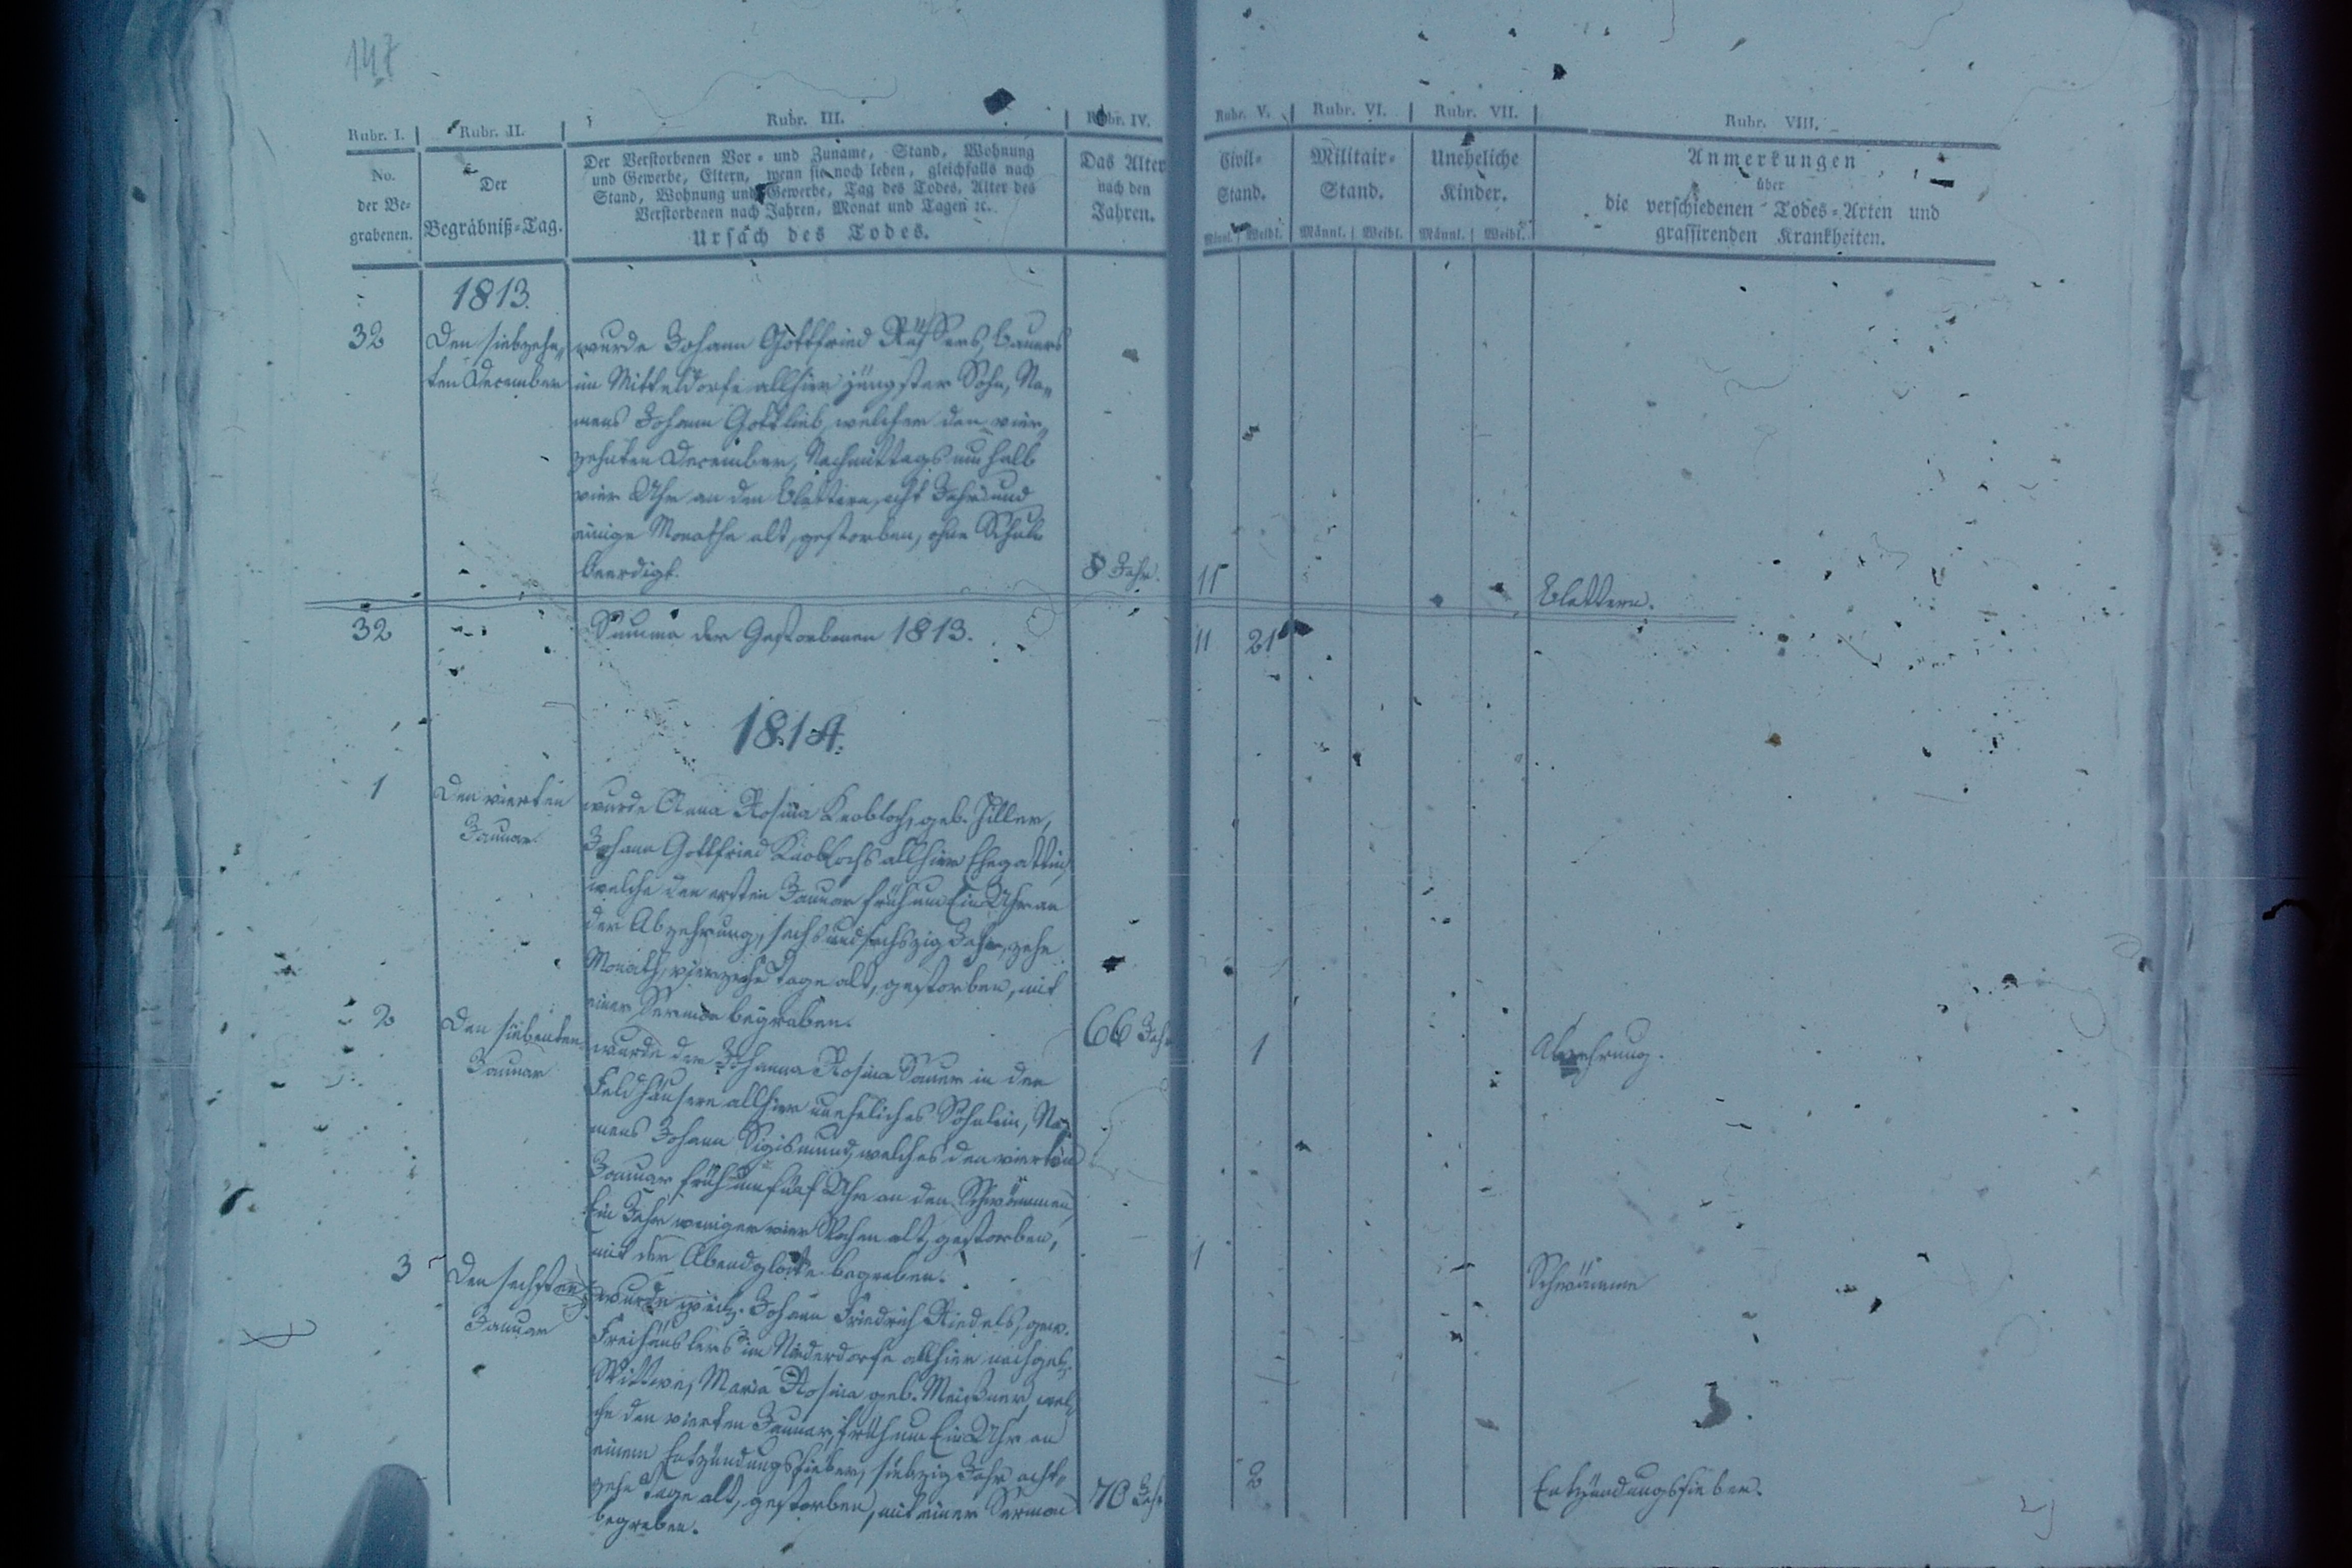 147
Rubr. I. Rubr. II. Rubr. III. Rubr. IV. Rubr. V. Rubr. VI. Rubr. VII. Rubr. VIII.
No.
der Be-
grabenen.
Der
Begräbniß-Tag.
Der Verstorbenen Vor- und Zuname, Stand, Wohnung
und Gewerbe, Eltern, wenn sie noch leben, gleichfalls nach
Stand, Wohnung und Gewerbe, Tag des Todes, Alter des
Verstorbenen nach Jahren, Monat und Tagen ꝛc.
Ursach des Todes.
Das Alter
nach den
Jahren.
Civil-
Stand.
Männl. Weibl.
Militair-
Stand.
Männl. Weibl.
Uneheliche
Kinder.
Männl. Weibl.
Anmerkungen
über
die verschiedenen Todes-Arten und
grassirenden Krankheiten.
1813.
32
Den siebzehn-
ten December
wurde Johann Gottfried Bauers
im Mitteldorfe allhier jüngster Sohn, Na-
mens Johann Gottlieb, welcher den vier-
zehnten December, Nachmittags um halb
vier Uhr an den Blattern, acht Jahr und
einige Monathe alt, gestorben, ohne Schule
beerdigt.
8 Jahr.
11
Blattern.
32
Summa der Gestorbenen 1813.
11 21
1814.
1
Den vierten
Januar
wurde Anna Rosina Knobloch, geb. Hiller,
Johann Gottfried Knoblochs allhier Ehegattin,
welche den ersten Januar früh um Ein Uhr an
der Abzehrung, sechs und sechszig Jahr, zehn
Monath, vierzehn Tage alt, gestorben, mit
einer Sermon begraben.
66 Jahr
1
Abzehrung.
2
Den siebenten
Januar
wurde der Johanna Rosina Sauer in den
Feldhäusern allhier uneheliches Söhnlein, Na-
mens Johann Sigismund, welches den vierten
Januar früh um fünf Uhr an den Schwämmen,
Ein Jahr weniger vier Wochen alt, gestorben,
mit der Abendglocke begraben.
1
Schwämme
3
Den sechsten
Januar
wurde weil. Johann Friedrich Riedels, gew.
Freihäuslers im Niederdorfe allhier nachgel.
Wittwe, Maria Rosina geb. Meißner, wel-
che den vierten Januar, früh um Ein Uhr an
einem Entzündungsfieber, siebzig Jahr acht-
zehn Tage alt, gestorben, mit einer Sermon
begraben.
70 Jahr
2
Entzündungsfieber.